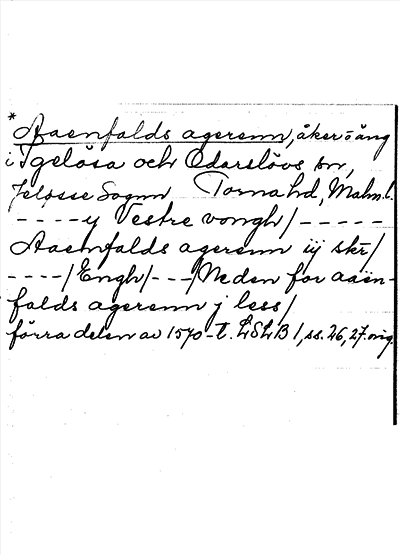 * Aaenfalds agerenn, åker o äng
i Igelösa och Odarslövs snr,
Jeløsse Sognn Torna hd, Malm.l.
----y Vestre vongh/-----
Aaenfalds agerenn iij skr/
----/Engh/---/Neden for aaen-
falds agerenn j less/
förra delen av 1570-t. LSLB 1, ss. 26, 27. orig.